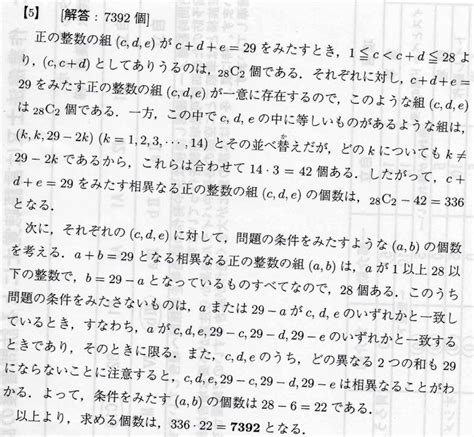 【5】 [解答：7392 個]
正の整数の組 (c, d, e) が c + d + e = 29 をみたすとき，1 ≦ c < c + d ≦ 28 よ
り，(c, c+d) としてありうるのは，₂₈C₂ 個である．それぞれに対し，c+d+e =
29 をみたす正の整数の組 (c, d, e) が一意に存在するので，このような組 (c, d, e)
は ₂₈C₂ 個である．一方，この中で c, d, e の中に等しいものがあるような組は，
(k, k, 29 − 2k) (k = 1, 2, 3, ⋯, 14) とその並べ替えだが，どの k についても k ≠
か
29 − 2k であるから，これらは合わせて 14 · 3 = 42 個ある．したがって，c +
d + e = 29 をみたす相異なる正の整数の組 (c, d, e) の個数は，₂₈C₂ − 42 = 336
となる．
次に，それぞれの (c, d, e) に対して，問題の条件をみたすような (a, b) の個数
を考える．a + b = 29 となる相異なる正の整数の組 (a, b) は，a が 1 以上 28 以
下の整数で，b = 29 − a となっているものすべてなので，28 個ある．このうち
問題の条件をみたさないものは，a または 29 − a が c, d, e のいずれかと一致し
ているとき，すなわち，a が c, d, e, 29 − c, 29 − d, 29 − e のいずれかと一致する
ときであり，そのときに限る．また，c, d, e のうち，どの異なる 2 つの和も 29
にならないことに注意すると，c, d, e, 29 − c, 29 − d, 29 − e は相異なることがわ
かる．よって，条件をみたす (a, b) の個数は 28 − 6 = 22 である．
以上より，求める個数は，336 · 22 = 7392 となる．